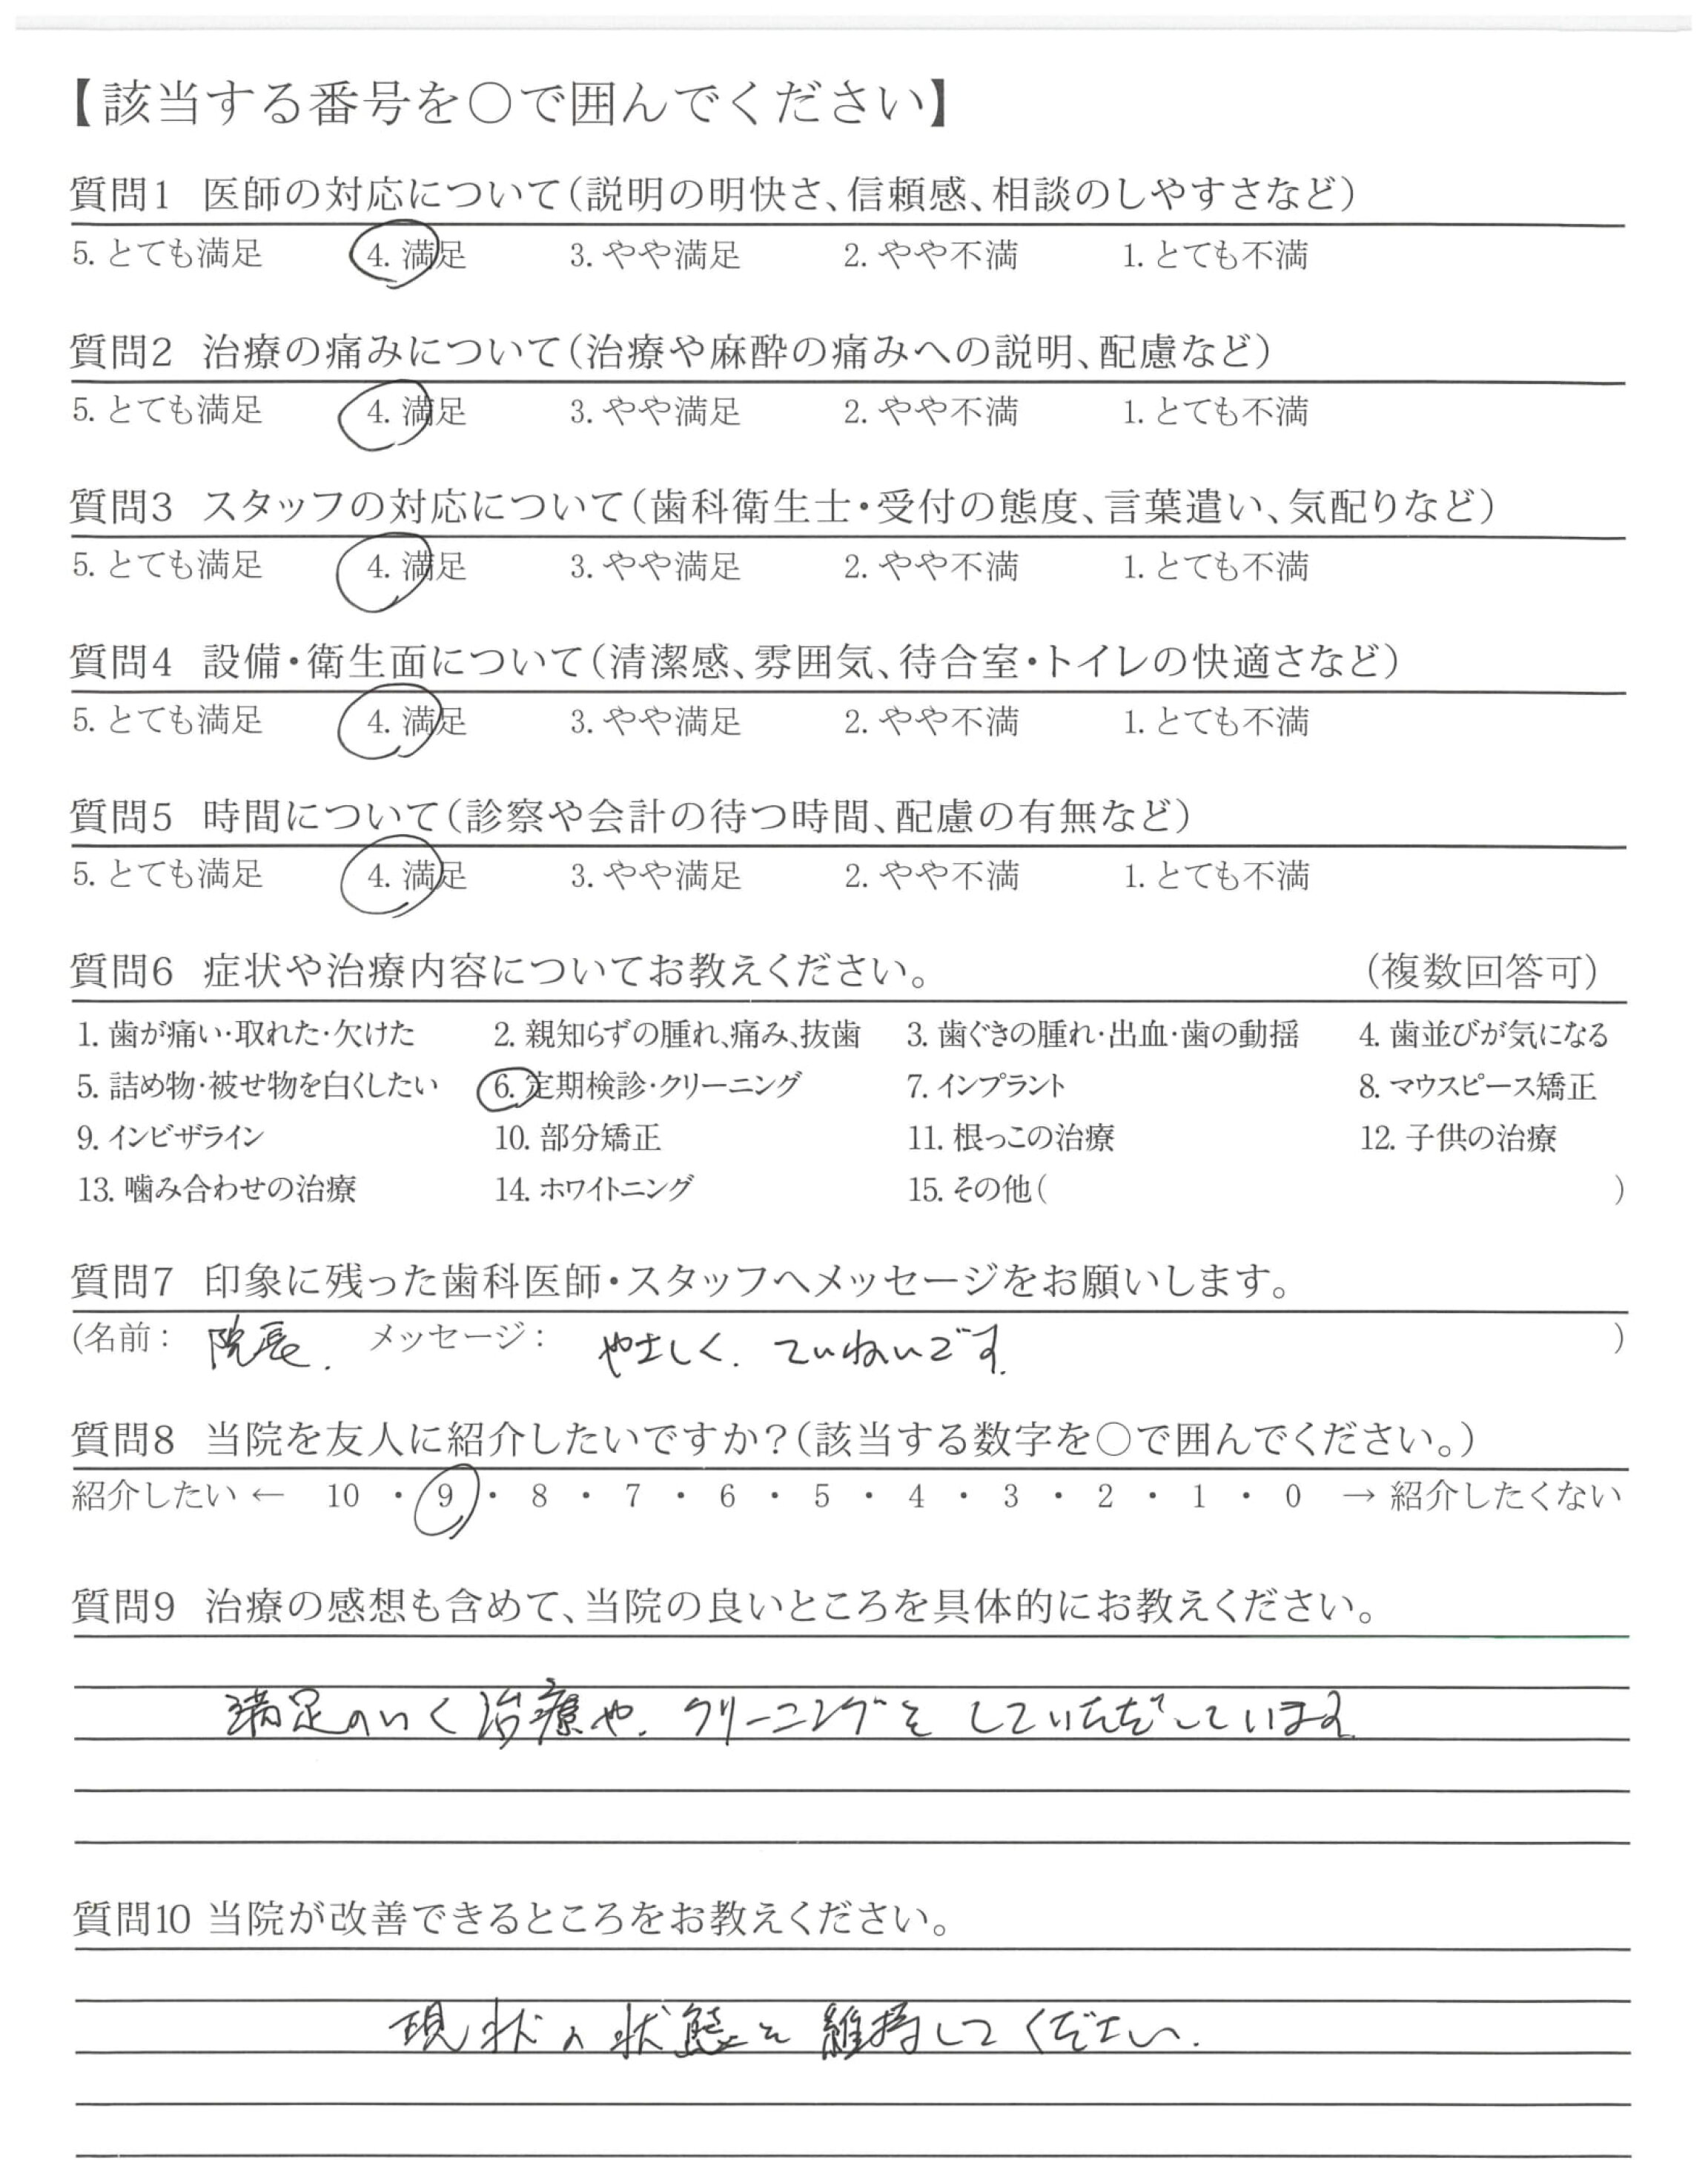 【該当する番号を○で囲んでください】
質問1 医師の対応について(説明の明快さ、信頼感、相談のしやすさなど)
5. とても満足 4. 満足 3. やや満足 2. やや不満 1. とても不満
質問2 治療の痛みについて(治療や麻酔の痛みへの説明、配慮など)
5. とても満足 4. 満足 3. やや満足 2. やや不満 1. とても不満
質問3 スタッフの対応について(歯科衛生士・受付の態度、言葉遣い、気配りなど)
5. とても満足 4. 満足 3. やや満足 2. やや不満 1. とても不満
質問4 設備・衛生面について(清潔感、雰囲気、待合室・トイレの快適さなど)
5. とても満足 4. 満足 3. やや満足 2. やや不満 1. とても不満
質問5 時間について(診察や会計の待つ時間、配慮の有無など)
5. とても満足 4. 満足 3. やや満足 2. やや不満 1. とても不満
質問6 症状や治療内容についてお教えください。 (複数回答可)
1. 歯が痛い・取れた・欠けた 2. 親知らずの腫れ、痛み、抜歯 3. 歯ぐきの腫れ・出血・歯の動揺 4. 歯並びが気になる
5. 詰め物・被せ物を白くしたい 6. 定期検診・クリーニング 7. インプラント 8. マウスピース矯正
9. インビザライン 10. 部分矯正 11. 根っこの治療 12. 子供の治療
13. 噛み合わせの治療 14. ホワイトニング 15. その他( )
質問7 印象に残った歯科医師・スタッフへメッセージをお願いします。
(名前: 院長. メッセージ: やさしく. ていねいです. )
質問8 当院を友人に紹介したいですか?(該当する数字を○で囲んでください。)
紹介したい ← 10 ・ 9 ・ 8 ・ 7 ・ 6 ・ 5 ・ 4 ・ 3 ・ 2 ・ 1 ・ 0 → 紹介したくない
質問9 治療の感想も含めて、当院の良いところを具体的にお教えください。
満足のいく治療や. クリーニングをしていただいています
質問10 当院が改善できるところをお教えください。
現状の状態を維持してください.